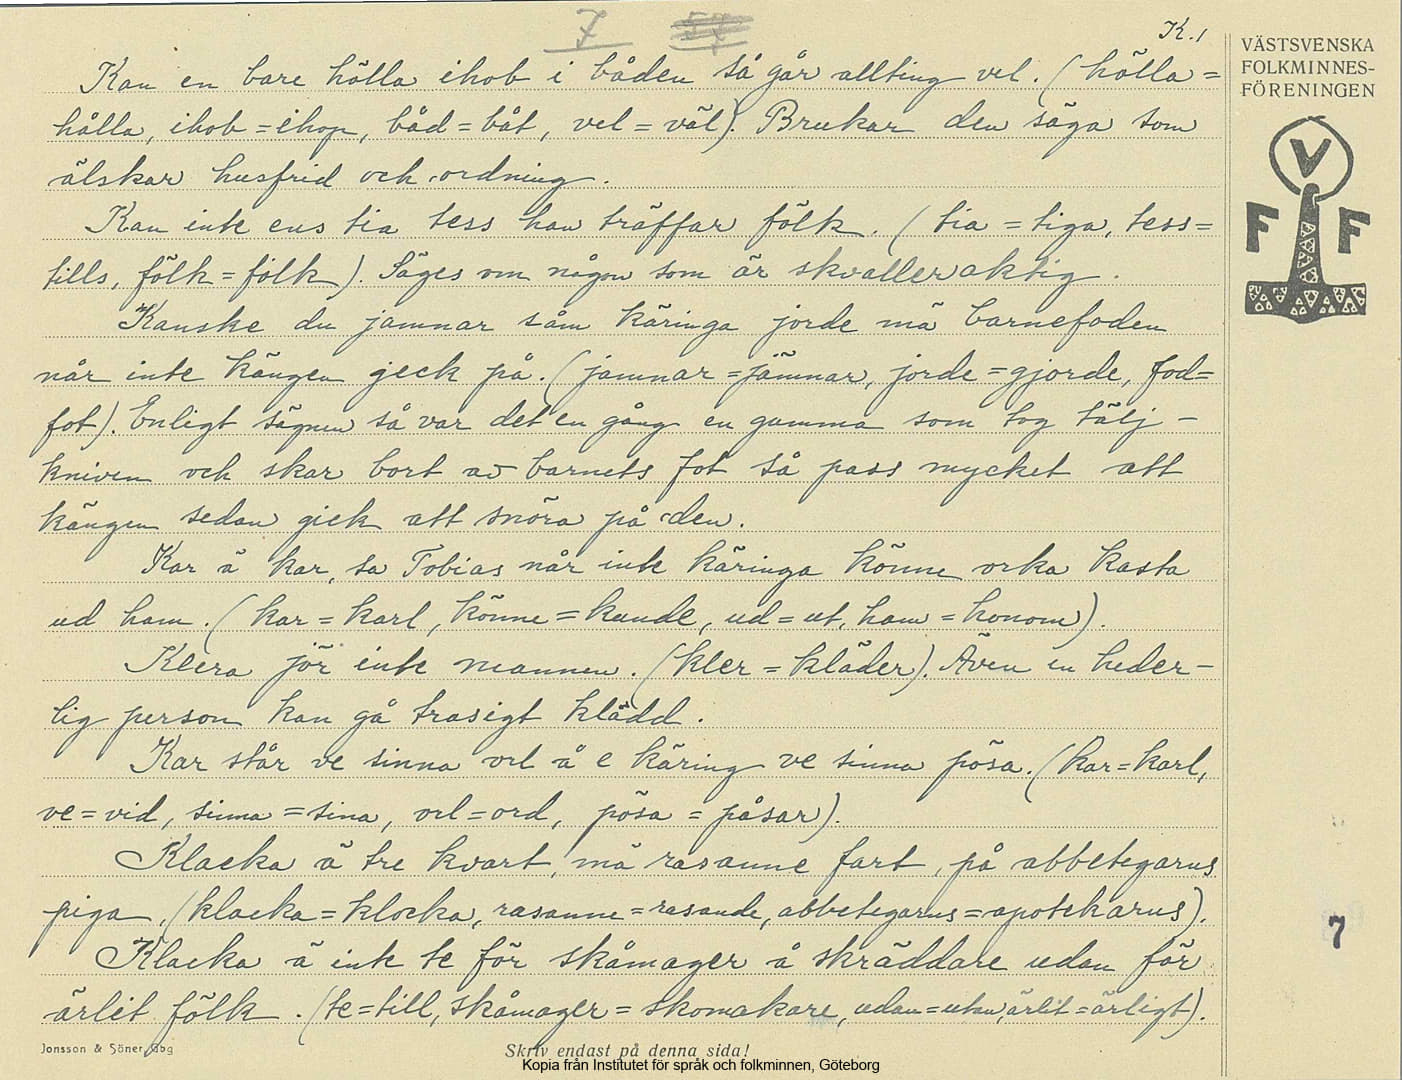 7
K.1
VÄSTSVENSKA
FOLKMINNES-
FÖRENINGEN
V
F F
Kan en bare hölla ihob i båden så går allting vel. (hölla=
hålla, ihob=ihop, båd=båt, vel=väl). Brukar den säga som
älskar husfrid och ordning.
Kan inte ens tia tess han träffar fölk. (tia=tiga, tess=
tills, fölk=folk). Säges om någon som är skvalleraktig.
Kanske du jamnar såm käringa jorde mä barnefoden
når inte kängen geck på. (jamnar=jämnar, jorde=gjorde, fod=
fot). Enligt sägnen så var det en gång en gumma som tog tälj-
kniven och skar bort av barnets fot så pass mycket att
kängen sedan gick att snöra på den.
Kar ä kar, sa Tobias når inte käringa könne orka kasta
ud ham. (kar=karl, könne=kunde, ud=ut, ham=honom).
Klera jör inte mannen. (kler=kläder). Även en heder-
lig person kan gå trasigt klädd.
Kar står ve sinna orl å e käring ve sinna pösa. (kar=karl,
ve=vid, sinna=sina, orl=ord, pösa=påsar).
Klacka ä tre kvart, mä rasanne fart, på abbetegarus
piga. (klacka=klocka, rasanne=rasande, abbetegarus=apotekarus).
Klacka ä inte te för skåmager å skräddare udan för
ärlit fölk. (te=till, skåmager=skomakare, udan=utan, ärlit=ärligt).
7
Jonsson & Söner, Gbg
Skriv endast på denna sida!
Kopia från Institutet för språk och folkminnen, Göteborg